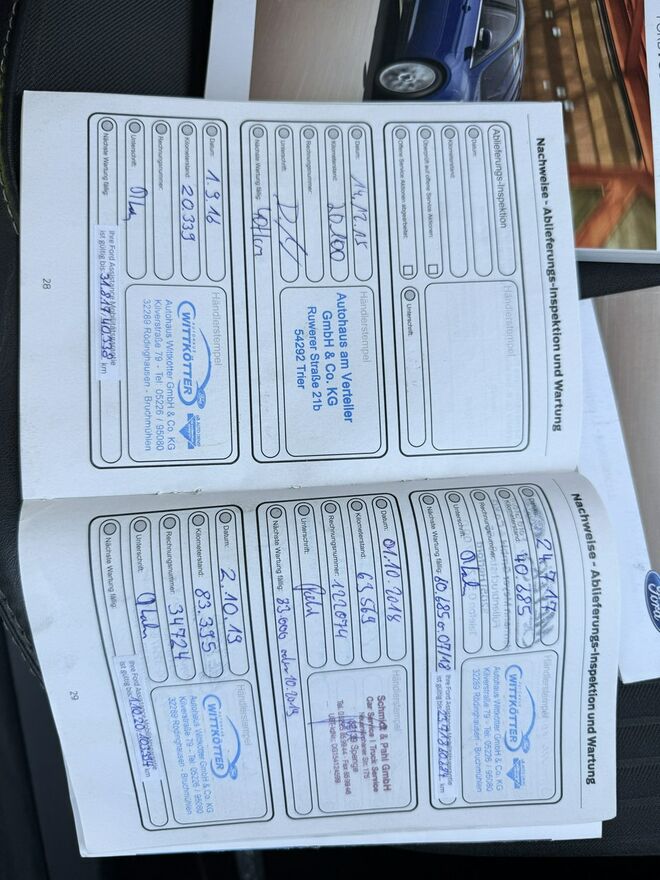 Nachweise - Ablieferungs-Inspektion und Wartung
Ablieferungs-Inspektion
Datum:
Kilometerstand:
Überprüft auf offene Service Aktionen:
Offene Service Aktionen abgearbeitet:
Händlerstempel
Unterschrift:
Datum: 14.12.15
Kilometerstand: 20.100
Rechnungsnummer:
Unterschrift:
Nächste Wartung fällig:
Händlerstempel
Autohaus am Verteiler
GmbH & Co. KG
Ruwerer Straße 21b
54292 Trier
Datum: 1.9.16
Kilometerstand: 20.339
Rechnungsnummer:
Unterschrift:
Nächste Wartung fällig:
Händlerstempel
AUTOHAUS
WITTKÖTTER
Autohaus Wittkötter GmbH & Co. KG
Kilverstraße 79 - Tel. 05226 / 95080
32289 Rödinghausen - Bruchmühlen
Ihre Ford Assistance Mobilitätsgarantie
ist gültig bis: 31.8.17/40.338 km
28
Nachweise - Ablieferungs-Inspektion und Wartung
24.7.17
40.685
Unterschrift:
Nächste Wartung fällig: 60.685 o. 07/18
Händlerstempel
WITTKÖTTER
Autohaus Wittkötter GmbH & Co. KG
Kilverstraße 79 - Tel. 05226 / 95080
32289 Rödinghausen - Bruchmühlen
ist gültig bis: km
Datum: 01.10.2018
Kilometerstand: 63.569
Rechnungsnummer: 122074
Unterschrift:
Nächste Wartung fällig: 83.000 oder 10.2019
Händlerstempel
Schmidt & Pahl GmbH
Car Service | Truck Service
Spenge
Datum: 2.10.19
Kilometerstand: 83.395
Rechnungsnummer: 34724
Unterschrift:
Nächste Wartung fällig:
Händlerstempel
WITTKÖTTER
Autohaus Wittkötter GmbH & Co. KG
Kilverstraße 79 - Tel. 05226 / 95080
32289 Rödinghausen - Bruchmühlen
29
Ford